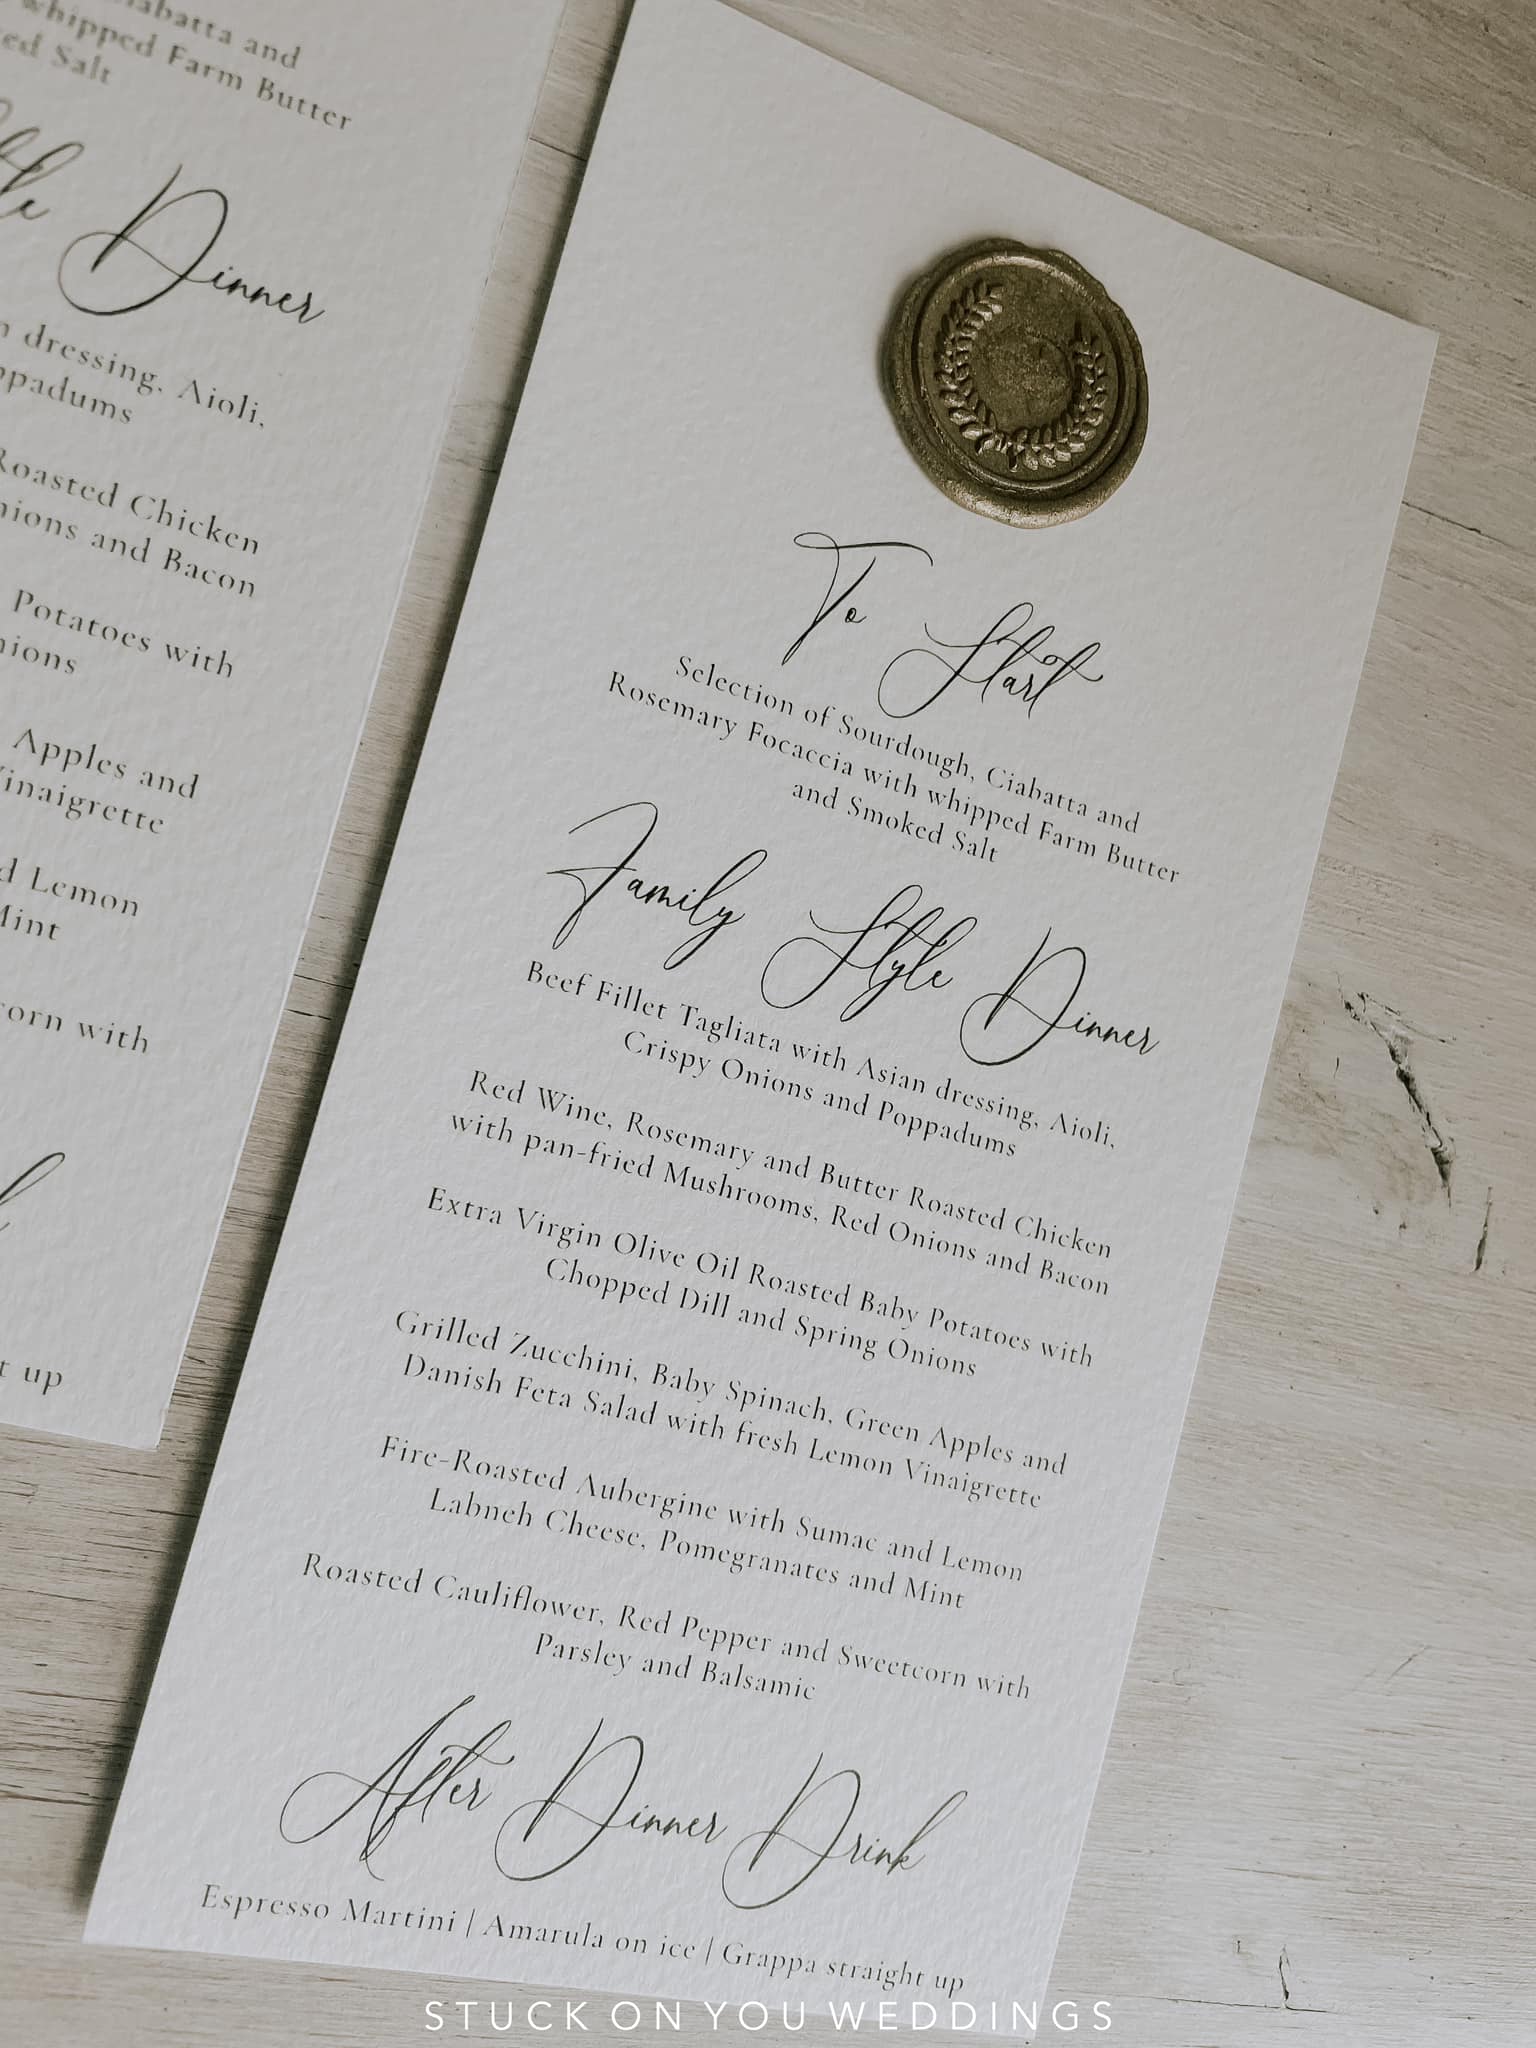 iabatta and
whipped Farm Butter
ed Salt
Dinner
dressing, Aioli,
ppadums
Roasted Chicken
nions and Bacon
Potatoes with
nions
Apples and
Vinaigrette
d Lemon
Mint
corn with
t up
To Start
Selection of Sourdough, Ciabatta and
Rosemary Focaccia with whipped Farm Butter
and Smoked Salt
Family Style Dinner
Beef Fillet Tagliata with Asian dressing, Aioli,
Crispy Onions and Poppadums
Red Wine, Rosemary and Butter Roasted Chicken
with pan-fried Mushrooms, Red Onions and Bacon
Extra Virgin Olive Oil Roasted Baby Potatoes with
Chopped Dill and Spring Onions
Grilled Zucchini, Baby Spinach, Green Apples and
Danish Feta Salad with fresh Lemon Vinaigrette
Fire-Roasted Aubergine with Sumac and Lemon
Labneh Cheese, Pomegranates and Mint
Roasted Cauliflower, Red Pepper and Sweetcorn with
Parsley and Balsamic
After Dinner Drink
Espresso Martini | Amarula on ice | Grappa straight up
STUCK ON YOU WEDDINGS